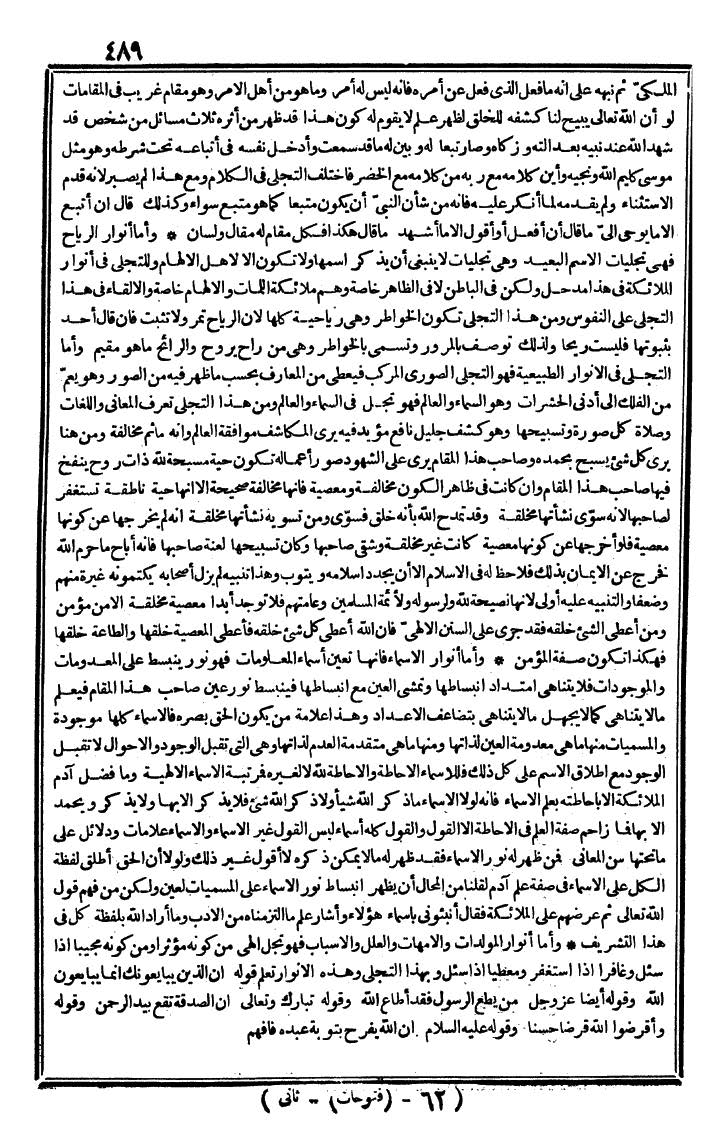 ٤٨٩
الملكىّ ثم نبهه على انه ما فعل الذى فعل عن أمره فانه ليس له أمر وما هو من أهل الامر وهو مقام غريب فى المقامات
لو أن الله تعالى يبيح لنا كشفه للخلق لظهر علم لا يقوم له كون هذا قد ظهر من أثره ثلاث مسائل من شخص قد
شهد الله عند نبيه بعدالته وزكاه وصار تبعا له وبين له ما قد سمعت وأدخل نفسه فى أتباعه تحت شرطه وهو مثل
موسى كليم الله ونجيه وأين كلامه مع ربه من كلامه مع الخضر فاختلف التجلى فى الكلام ومع هذا لم يصبر لانه قدم
الاستثناء ولم يقدمه لما أنكر عليه فانه من شأن النبىّ أن يكون متبعا كما هو متبع سواء وكذلك قال ان أتبع
الا ما يوحى الىّ ما قال أن أفعل أو أقول الا ما أشهد ما قال هكذا فكل مقام له مقال ولسان * وأما أنوار الرياح
فهى تجليات الاسم البعيد وهى تجليات لا ينبغى أن يذكر اسمها ولا تكون الا لاهل الالهام وللتجلى فى أنوار
الملائكة فى هذا مدخل ولكن فى الباطن لا فى الظاهر خاصة وهم ملائكة اللمات والالهام خاصة والالقاء فى هذا
التجلى على النفوس ومن هذا التجلى تكون الخواطر وهى رياحية كلها لان الرياح تمر ولا تثبت فان قال أحد
بثبوتها فليست ريحا ولذلك توصف بالمرور وتسمى بالخواطر وهى من راح يروح والرائح ما هو مقيم وأما
التجلى فى الانوار الطبيعية فهو التجلى الصورى المركب فيعطى من المعارف بحسب ما ظهر فيه من الصور وهو يعمّ
من الفلك الى أدنى الحشرات وهو السماء والعالم فهو تجل فى السماء والعالم ومن هذا التجلى تعرف المعانى واللغات
وصلاة كل صورة وتسبيحها وهو كشف جليل نافع مؤيد فيه يرى المكاشف موافقة العالم وانه ما تم مخالفة ومن هنا
يرى كل شئ يسبح بحمده وصاحب هذا المقام يرى على الشهود صور أعماله تكون حية مسبحة لله ذات روح ينفخ
فيها صاحب هذا المقام وان كانت فى ظاهر الكون مخالفة ومعصية فانها مخالفة صحيحة الا انها حية ناطقة تستغفر
لصاحبها لانه سوّى نشأتها مخلقة وقد تمدح الله بأنه خلق فسوّى ومن تسويه نشأتها مخلقة انه لم يخرجها عن كونها
معصية فلو أخرجها عن كونها معصية كانت غير مخلقة وشقى صاحبها وكان تسبيحها لعنة صاحبها فانه أباح ما حرم الله
نخرج عن الايمان بذلك فلا حظ له فى الاسلام الا أن يجدد اسلامه ويتوب وهذا تنبيه لم يزل أصحابه يكتمونه غيرة منهم
وضعفا والتنبيه عليه أولى لانها نصيحة لله ولرسوله ولأئمة المسلمين وعامتهم فلا توجد أبدا معصية مخلقة الا من مؤمن
ومن أعطى الشئ خلقه فقد جرى على السنن الالهىّ فان الله أعطى كل شئ خلقه فأعطى المعصية خلقها والطاعة خلقها
فهكذا تكون صفة المؤمن * وأما أنوار الاسماء فانها تعين أسماء المعلومات فهو نور ينبسط على المعدومات
والموجودات فلا يتناهى امتداد انبساطها وتمشى العين مع انبساطها فينبسط نور عين صاحب هذا المقام فيعلم
ما لا يتناهى كما لا يجهل ما لا يتناهى بتضاعف الاعداد وهذا علامة من يكون الحق بصره فالاسماء كلها موجودة
والمسميات منها ما هى معدومة العين لذاتها ومنها ما هى متقدمة العدم لذاتها وهى التى تقبل الوجود والاحوال لا تقبل
الوجود مع اطلاق الاسم على كل ذلك فللاسماء الاحاطة والاحاطة لله لا لغيره فرتبة الاسماء الالهية وما فضل آدم
الملائكة الا باحاطته بعلم الاسماء فانه لولا الاسماء ما ذكر الله شيأ ولا ذكر الله شئ فلا يذكر الا بها ولا يذكر ويحمد
الا بها فما زاحم صفة العلم فى الاحاطة الا القول والقول كله أسماء ليس القول غير الاسماء والاسماء علامات ودلائل على
ما تحتها من المعانى فمن ظهر له نور الاسماء فقد ظهر له ما لا يمكن ذكره لا أقول غير ذلك ولولا أن الحق أطلق لفظة
الكل على الاسماء فى صفة علم آدم لقلنا من المحال أن يظهر انبساط نور الاسماء على المسميات لعين ولكن من فهم قول
الله تعالى ثم عرضهم على الملائكة فقال أنبئونى باسماء هؤلاء وأشار علم ما التزمناه من الادب وما أراد الله بلفظة كل فى
هذا التشريف * وأما أنوار المولدات والامهات والعلل والاسباب فهو تجل الهى من كونه مؤثرا ومن كونه مجيبا اذا
سئل وغافرا اذا استغفر ومعطيا اذا سئل وبهذا التجلى وهذه الانوار تعلم قوله ان الذين يبايعونك انما يبايعون
الله وقوله أيضا عز وجل من يطع الرسول فقد أطاع الله وقوله تبارك وتعالى ان الصدقة تقع بيد الرحمن وقوله
وأقرضوا الله قرضا حسنا وقوله عليه السلام ان الله يفرح بتوبة عبده فافهم
( ٦٢ - (فتوحات) - ثانى )